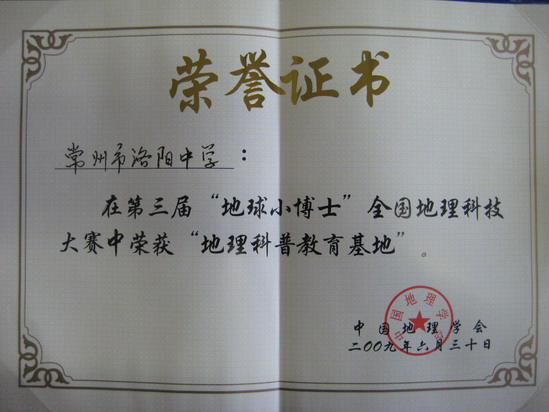 荣誉证书
常州市洛阳中学：
在第三届“地球小博士”全国地理科技
大赛中荣获“地理科普教育基地”。
中国地理学会
中国地理学会
二00九年六月三十日